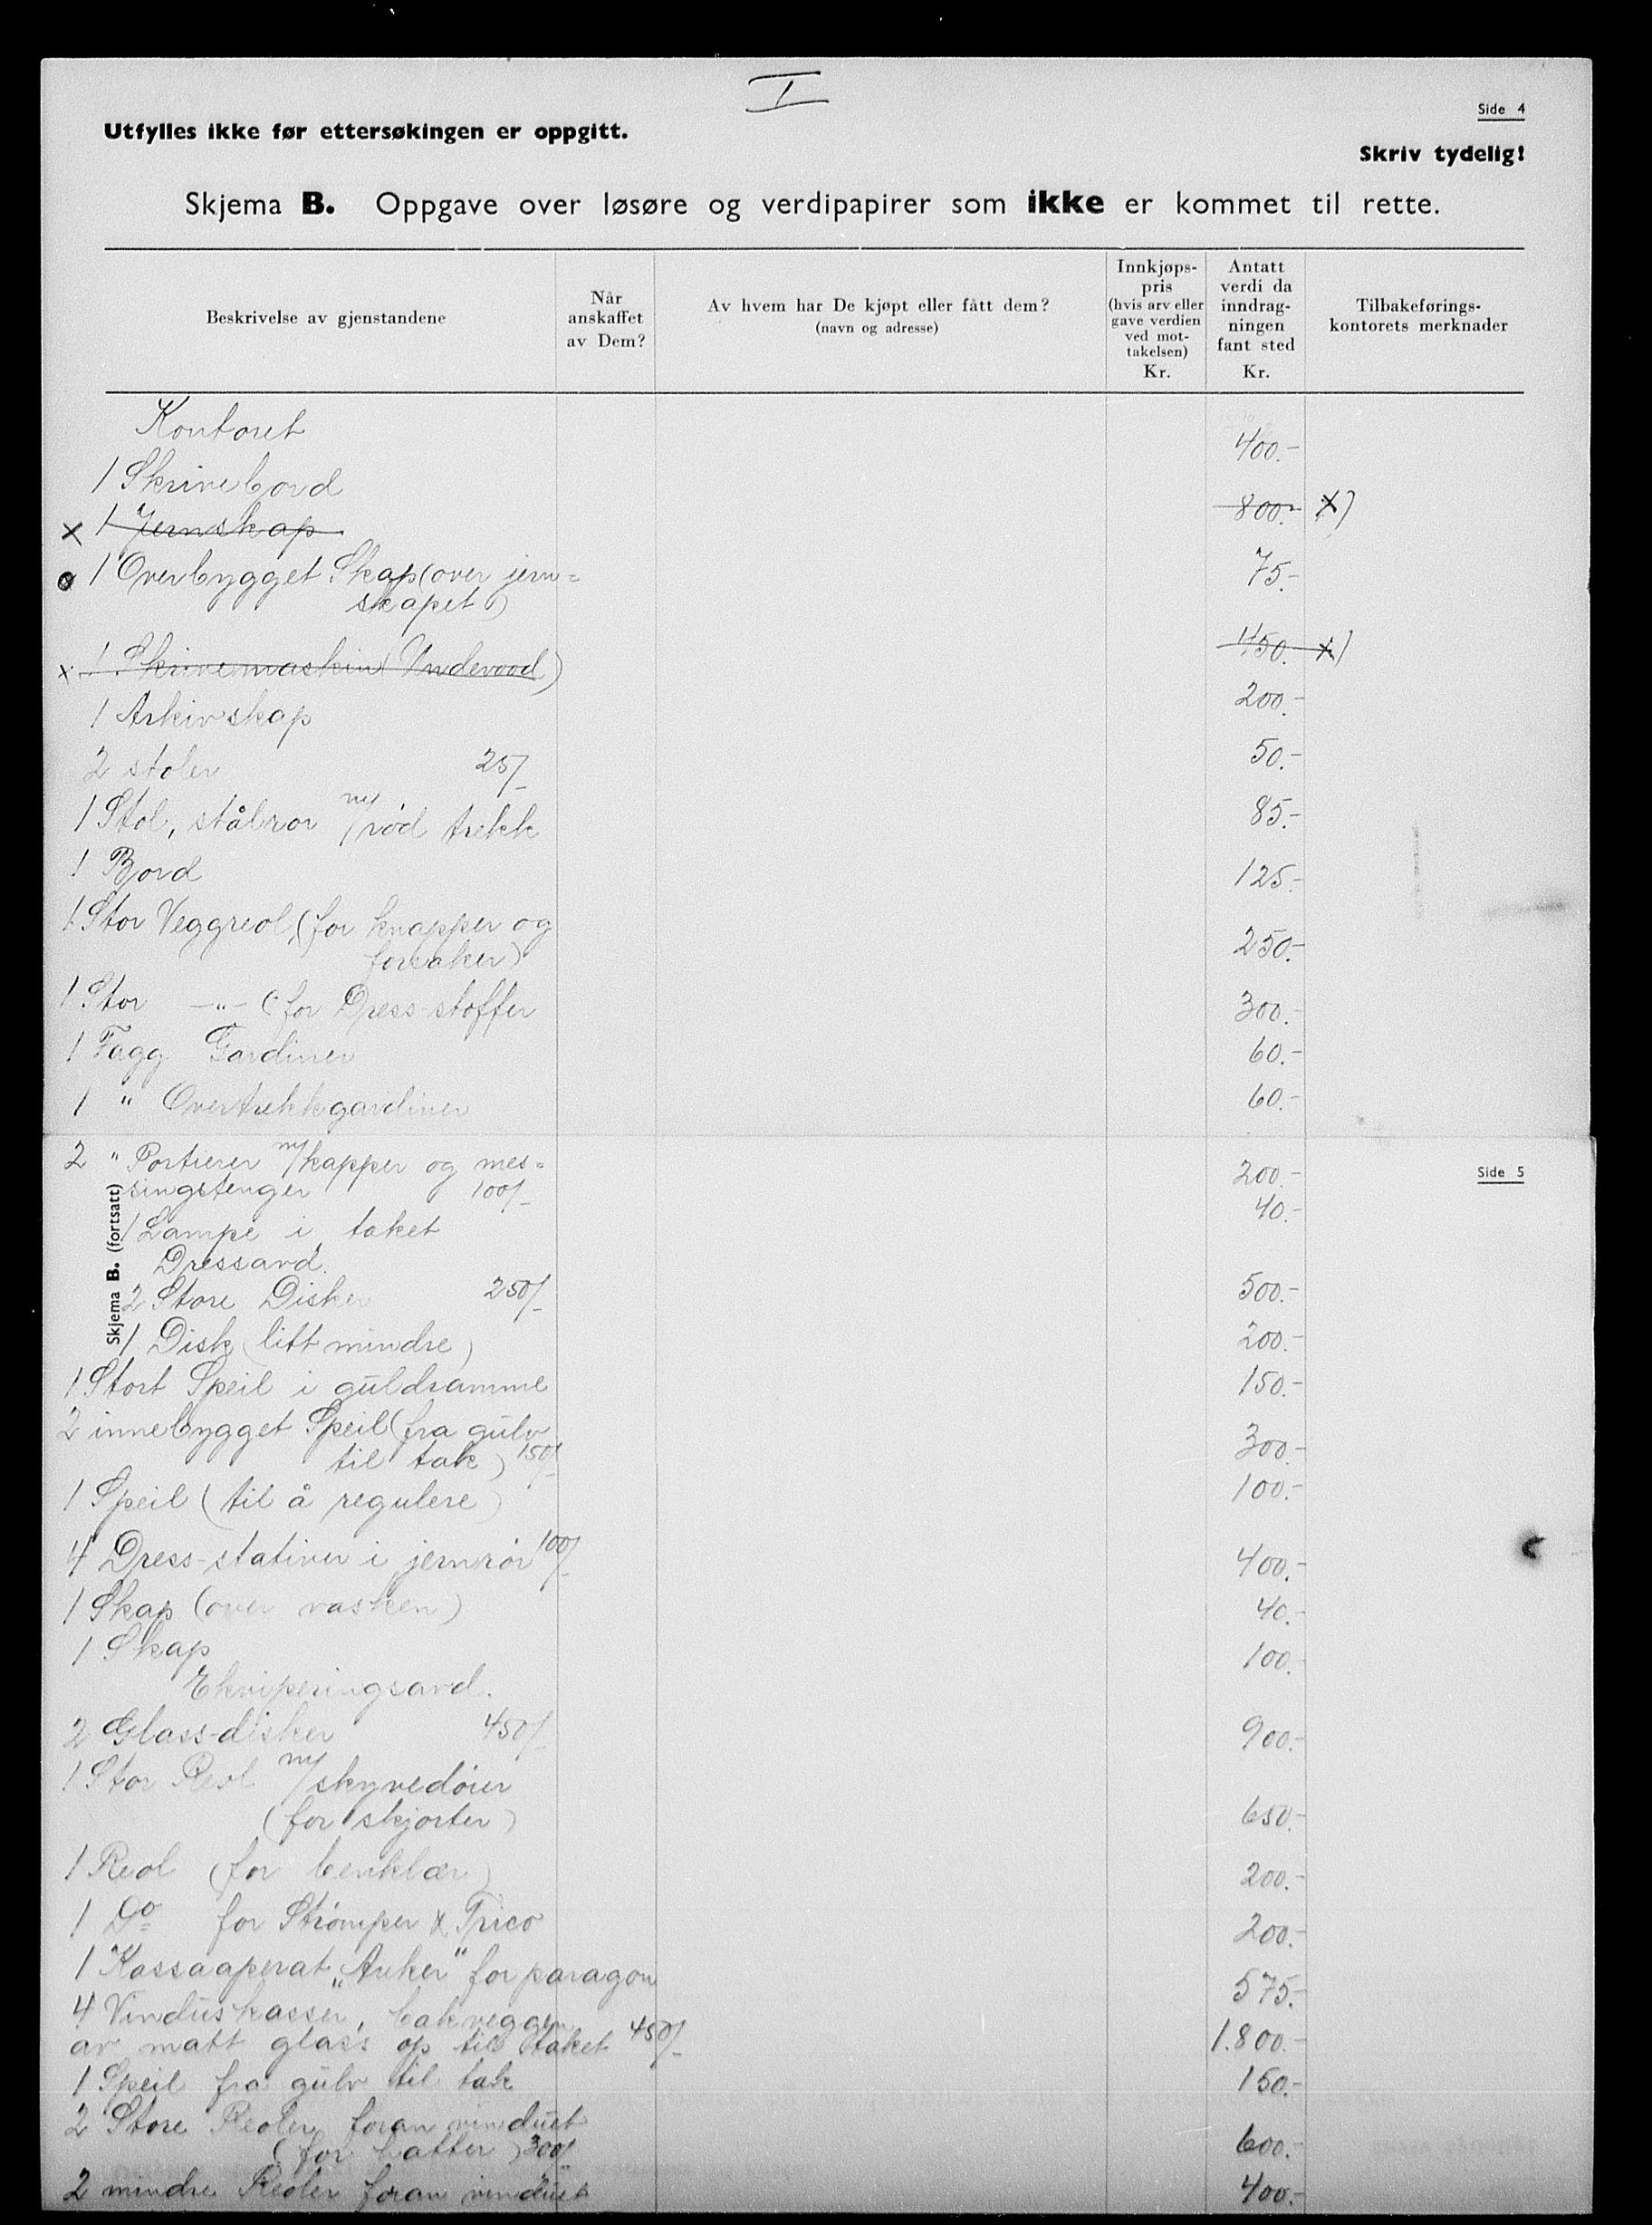 I
Side 4
Utfylles ikke før ettersøkingen er oppgitt.
Skriv tydelig!
Skjema B. Oppgave over løsøre og verdipapirer som ikke er kommet til rette.
Beskrivelse av gjenstandene
Når anskaffet av Dem?
Av hvem har De kjøpt eller fått dem? (navn og adresse)
Innkjøpspris (hvis arv eller gave verdien ved mottakelsen) Kr.
Antatt verdi da inndragningen fant sted Kr.
Tilbakeføringskontorets merknader
Kontoret
1 Skrivebord 400.-
x 1 Jernskap 800.- x)
ø 1 Overbygget Skap (over jern=
skapet) 75.-
x 1 Skrivemaskin (Undevood) 450.- x)
1 Arkivskap 200.-
2 stoler 25/- 50.-
1 Stol, stålrør m/rød trekk 85.-
1 Bord 125.-
1 Stor Veggreol, (for knapper og
forsaker) 250.-
1 Stor -"- (for Dress-stoffer 300.-
1 Fagg Gardiner 60.-
1 " Overtrekkgardiner 60.-
2 " Portierer m/kapper og mes=
singstenger 100/- 200.-
Side 5
Skjema B. (fortsatt)
1 Lampe i taket 40.-
Dressavd.
2 Store Disker 250/- 500.-
1 Disk (litt mindre) 200.-
1 Stort Speil i guldramme 150.-
2 innebygget Speil (fra gulv
til tak) 150/- 300.-
1 Speil (til å regulere) 100.-
4 Dress-stativer i jernrør 100/- 400.-
1 Skap (over vasken) 40.-
1 Skap 100.-
Ekviperingsavd.
2 Glass-disker 450/- 900.-
1 Stor Reol m/skyvedører
(for skjorter) 650.-
1 Reol (for benklær) 200.-
1 Do for Strømper & Trico 200.-
1 Kassaaperat "Anker" for paragon 575.-
4 Vinduskasser, bakveggen
av matt glass op til taket 450/- 1.800.-
1 Speil fra gulv til tak 150.-
2 Store Reoler foran vinduet
(for hatter) 300/- 600.-
2 mindre Reoler foran vinduet 400.-